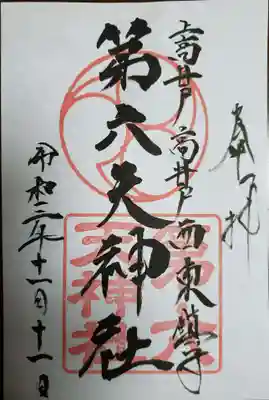 奉拝
上高井戸高井戸西東鎮守
第六天神社
令和二年十一月十一日